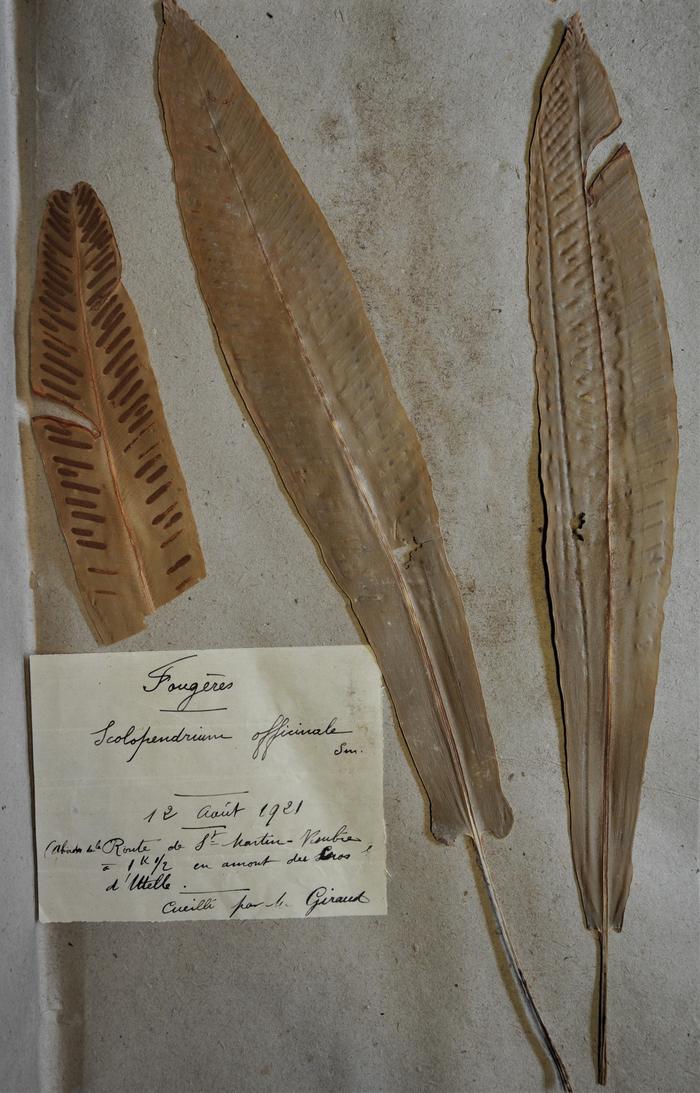 Fougères
Scolopendrium officinale
Sm.
12 Août 1921
Route de St Martin-Vésubie
à 1 K 1/2 en amont du Cros
d'Utelle.
Cueilli par M. Giraud